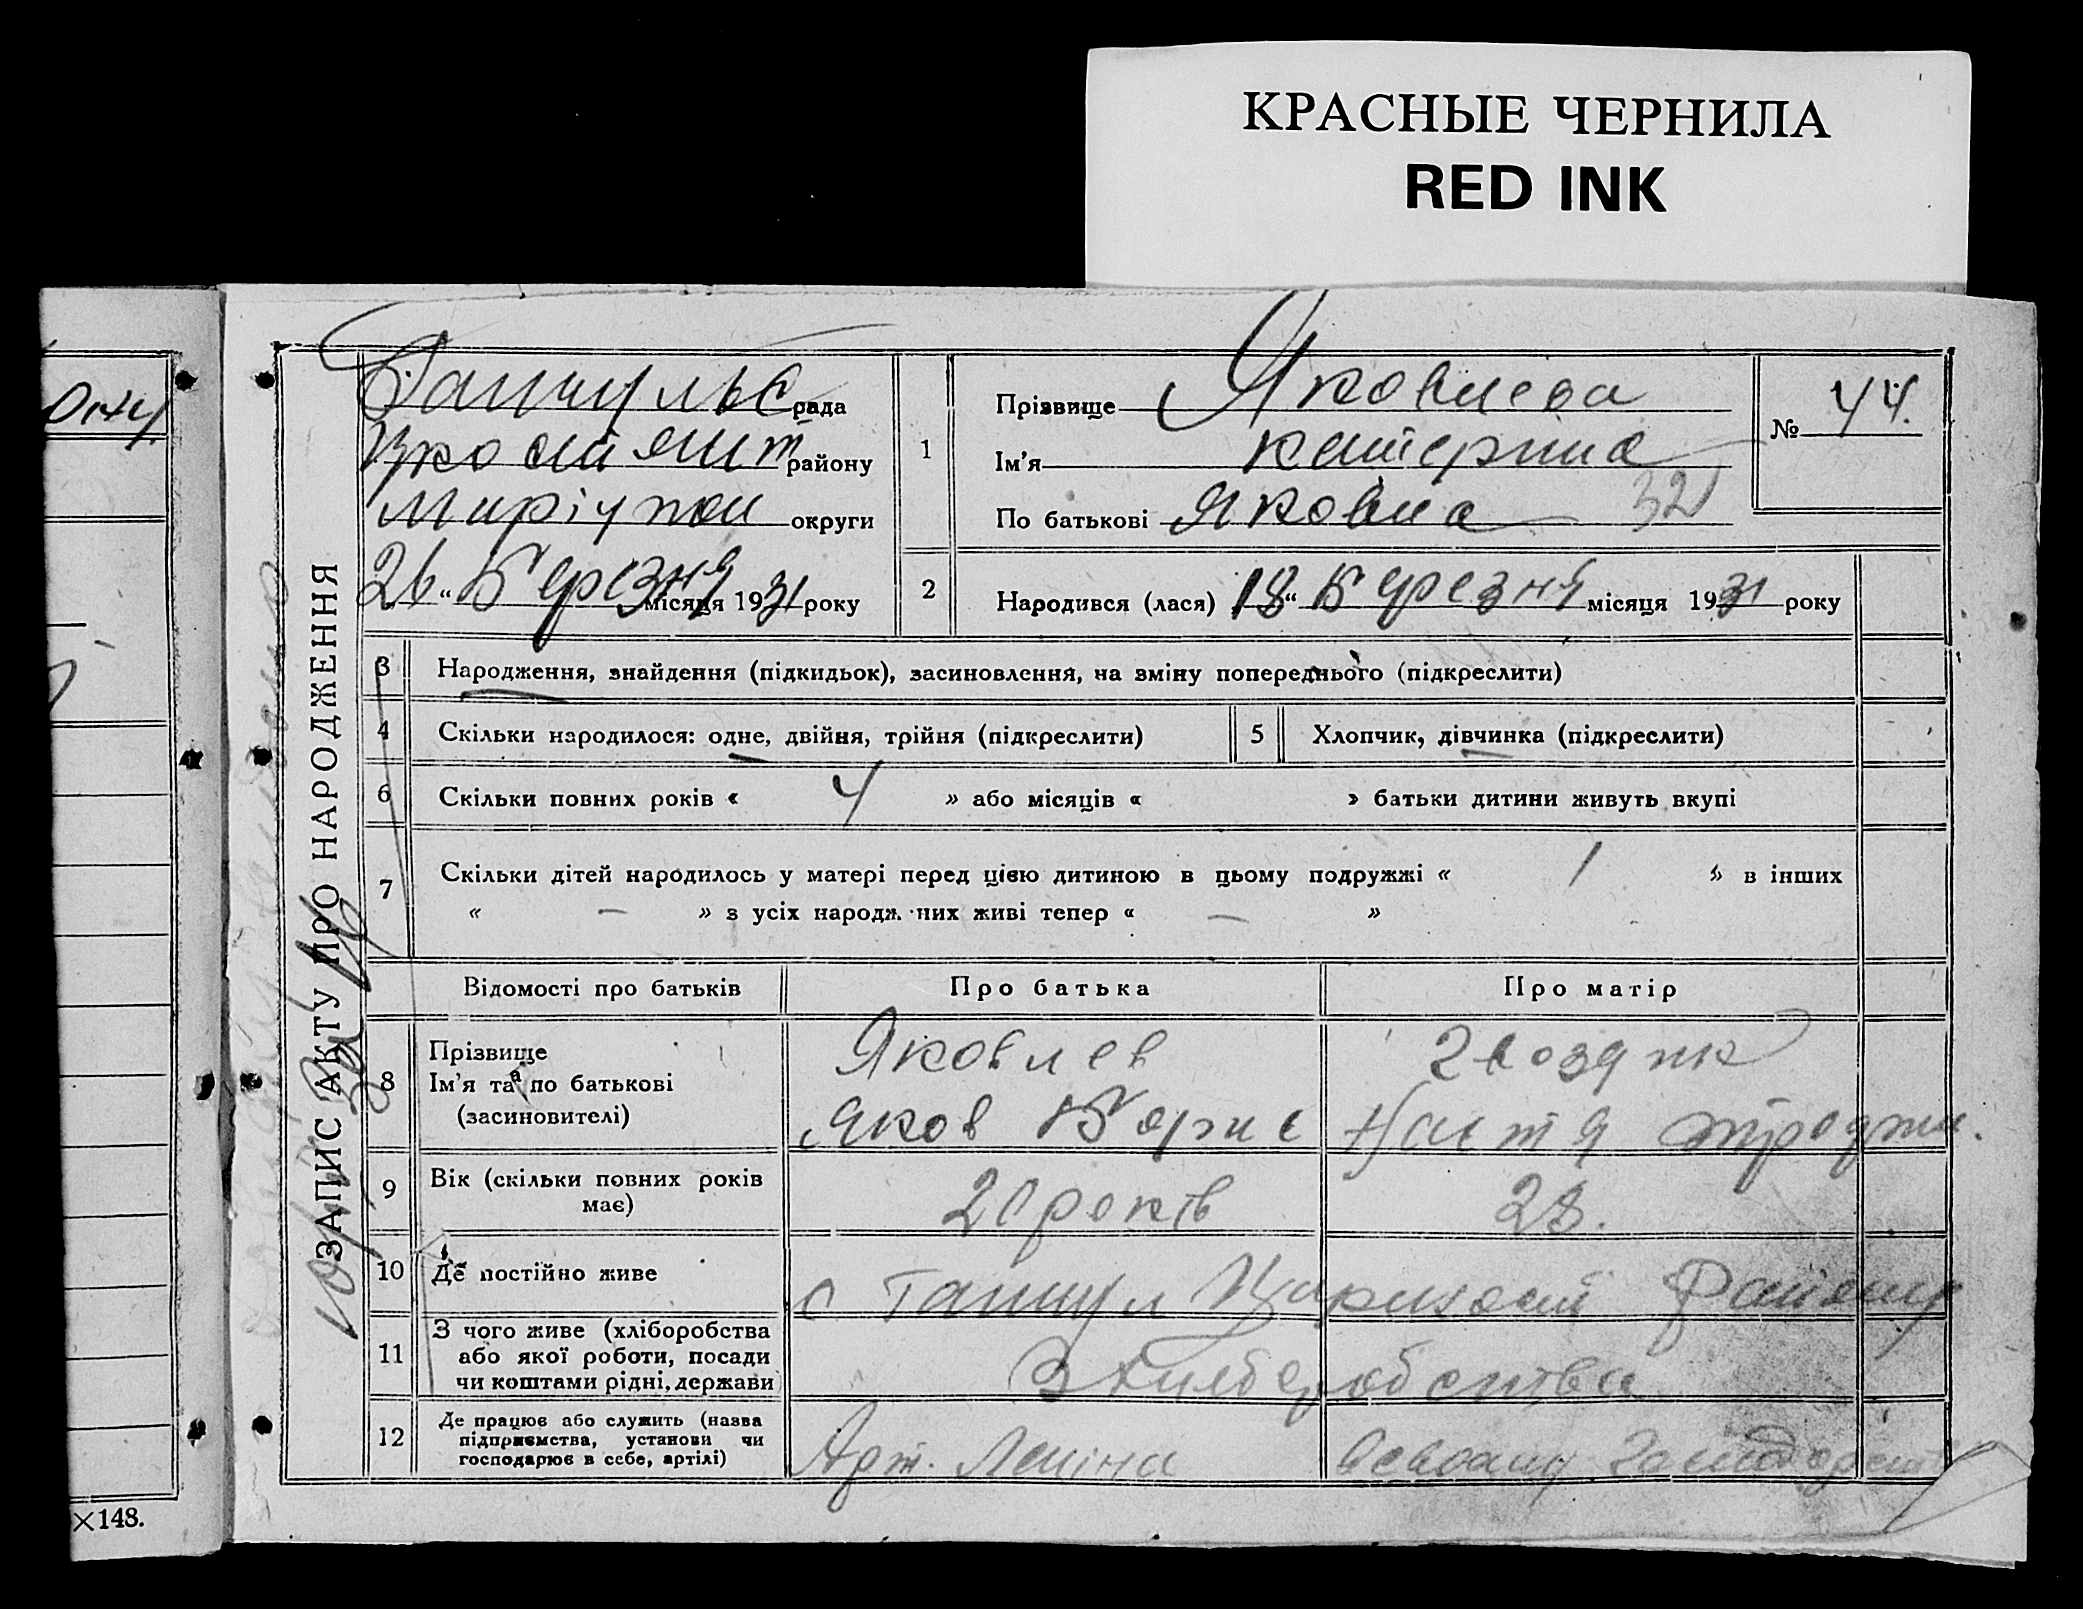 КРАСНЫЕ ЧЕРНИЛА
RED INK
рада
району
округи
26 " Березня місяця 1931 року
1
Прізвище Яковлева
Ім'я Катерина
По батькові Яковна 32
№ 44.
2
Народився (лася) 18 " Березня місяця 1931 року
ЗАПИС АКТУ ПРО НАРОДЖЕННЯ
3 Народження, знайдення (підкидьок), засиновлення, на зміну попереднього (підкреслити)
4 Скільки народилося: одне, двійня, трійня (підкреслити) 5 Хлопчик, дівчинка (підкреслити)
6 Скільки повних років « 4 » або місяців « » батьки дитини живуть вкупі
7 Скільки дітей народилось у матері перед цією дитиною в цьому подружжі « 1 » в інших
« — » з усіх народж. них живі тепер « — »
Відомості про батьків Про батька Про матір
8 Прізвище
Ім'я та по батькові
(засиновителі)
Яковлев
Яков Борис
Настя
9 Вік (скільки повних років
має)
20 років
28.
10 Де постійно живе
с
району
11 З чого живе (хліборобства
або якої роботи, посади
чи коштами рідні, держави
З хліборобства
12 Де працює або служить (назва
підприємства, установи чи
господарює в себе, артілі)
Арт. Леніна
×148.